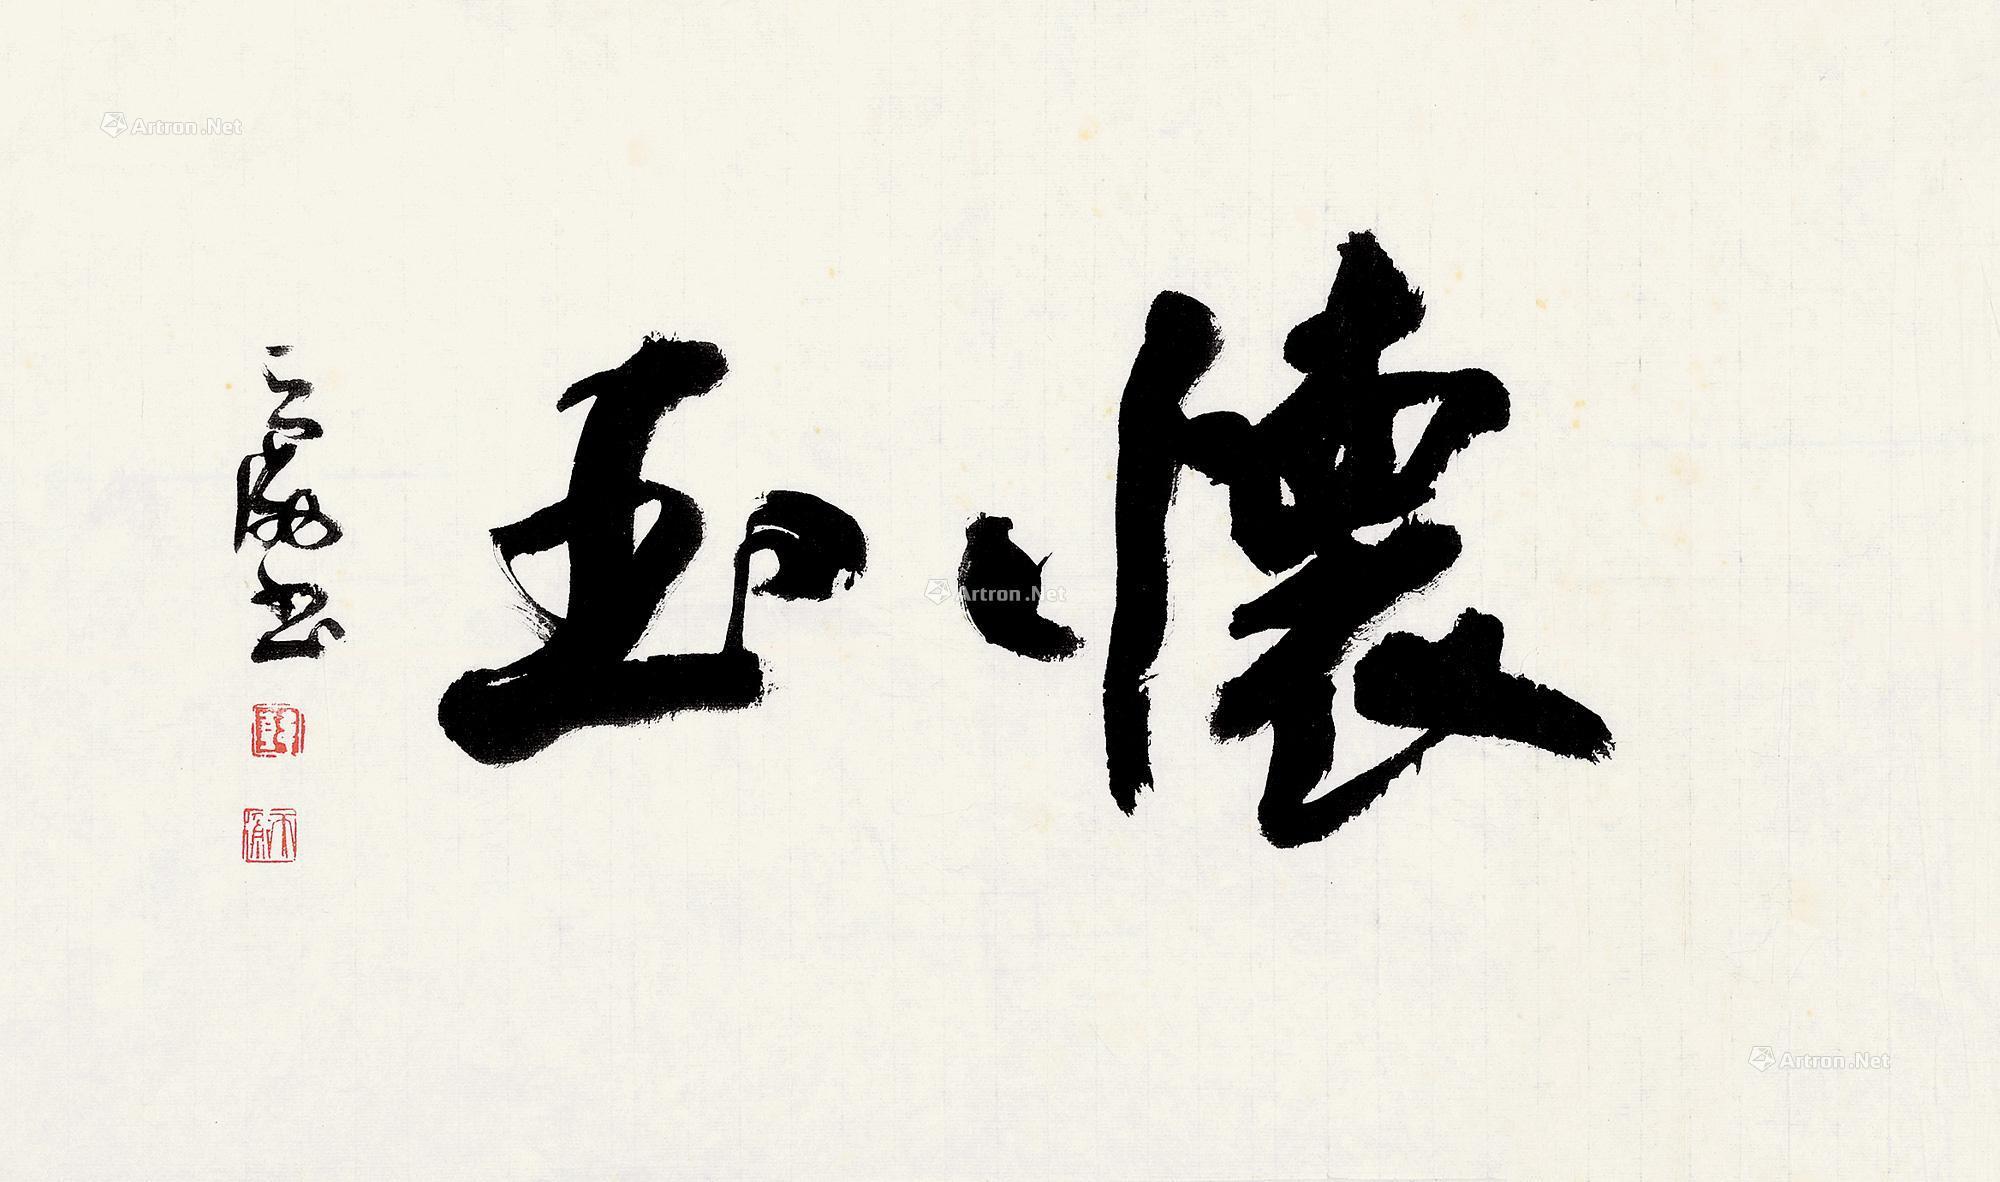 懷玉
云海书
Artron.Net
Artron.Net
Artron.Net